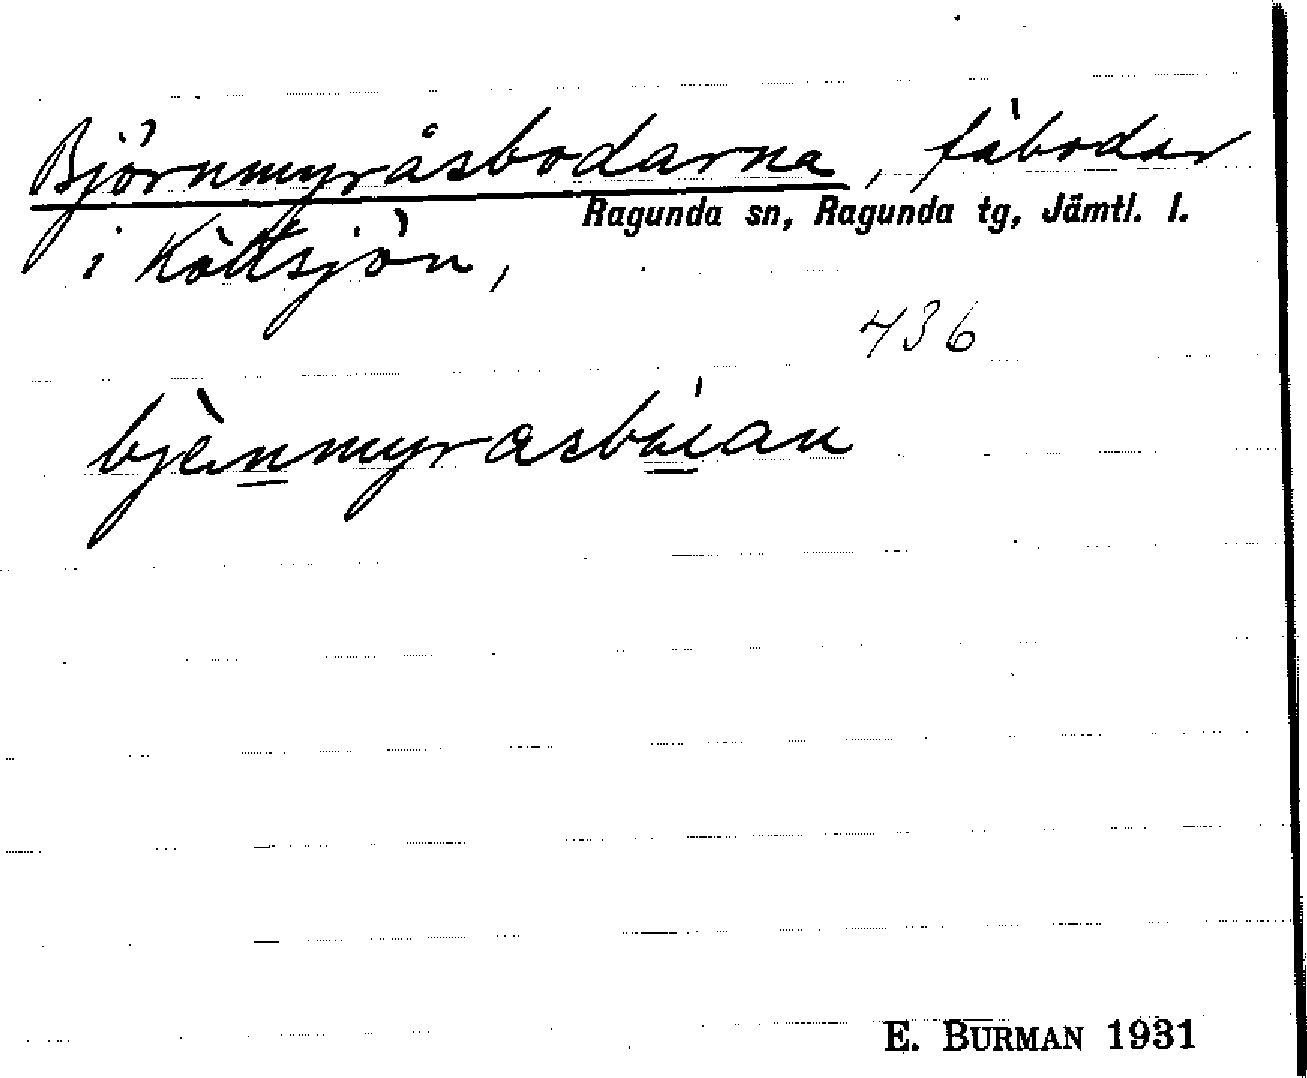 Björnmyråsbodarna, fäbodar
Ragunda sn, Ragunda tg, Jämtl. l.
i Köttsjön,
436
bjènmyrasbúian
E. BURMAN 1931